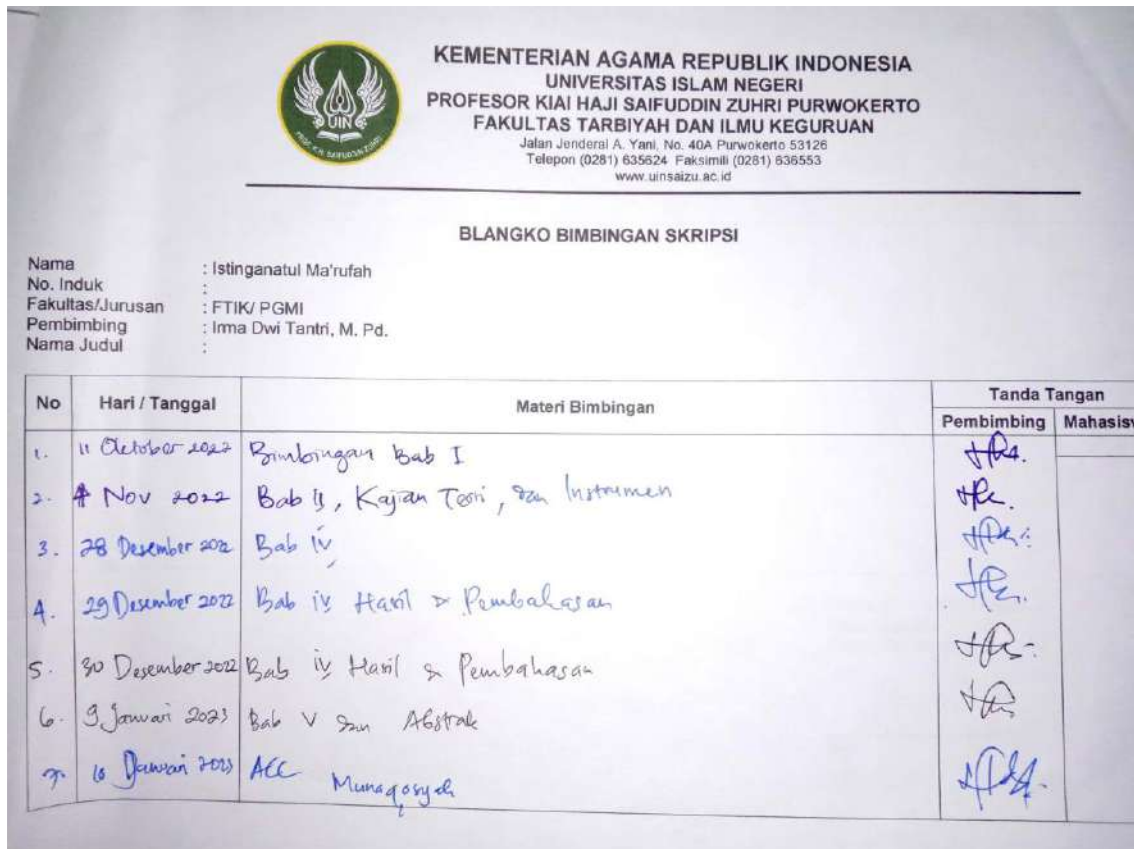 KEMENTERIAN AGAMA REPUBLIK INDONESIA
UNIVERSITAS ISLAM NEGERI
PROFESOR KIAI HAJI SAIFUDDIN ZUHRI PURWOKERTO
FAKULTAS TARBIYAH DAN ILMU KEGURUAN
Jalan Jenderal A. Yani, No. 40A Purwokerto 53126
Telepon (0281) 635624 Faksimili (0281) 636553
www.uinsaizu.ac.id
UIN
BLANGKO BIMBINGAN SKRIPSI
Nama : Istinganatul Ma'rufah
No. Induk :
Fakultas/Jurusan : FTIK/ PGMI
Pembimbing : Irma Dwi Tantri, M. Pd.
Nama Judul :
No Hari / Tanggal Materi Bimbingan Tanda Tangan
Pembimbing Mahasisw
1. 11 October 2022 Bimbingan Bab I
2. 4 Nov 2022 Bab II, Kajian Teori, dan Instrumen
3. 28 Desember 2022 Bab IV
4. 29 Desember 2022 Bab IV Hasil & Pembahasan
5. 30 Desember 2022 Bab IV Hasil & Pembahasan
6. 9 Januari 2023 Bab V dan Abstrak
7. 10 Januari 2023 ACC Munaqosyah